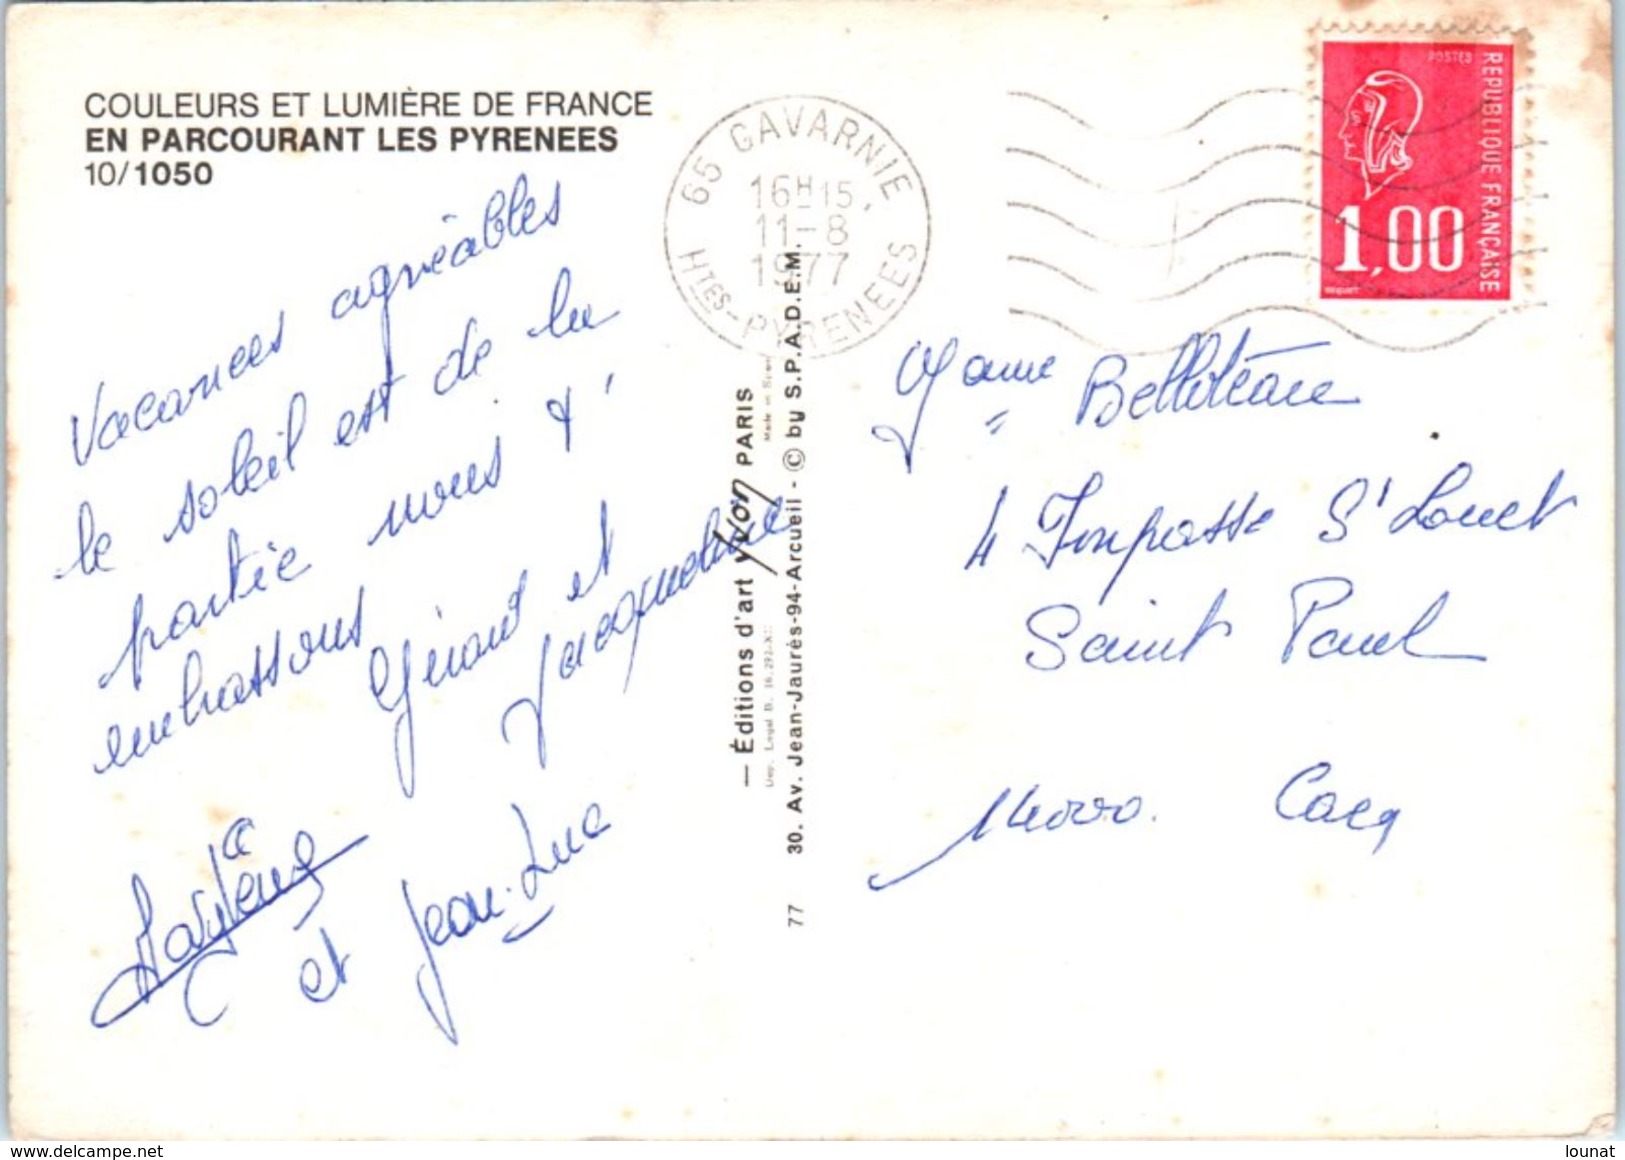 COULEURS ET LUMIÈRE DE FRANCE
EN PARCOURANT LES PYRENEES
10/1050
Vacances agréables
le soleil est de la
partie nous t'
embrassons Gérard et
Jacqueline
et Jean-Luc
65 GAVARNIE
16H15
11-8
1977
HTES-PYRENEES
POSTES
REPUBLIQUE FRANÇAISE
1,00
— Éditions d'art Yvon PARIS
77 30. Av. Jean-Jaurès-94-Arcueil - © by S.P.A.D.E.M.
4 Impasse St Louet
Saint Paul
14000. Caen
© lounat